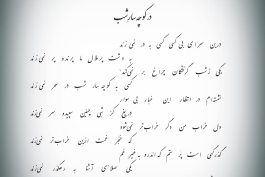 در کوچه‌سار شب
درین سرای بی کسی کسی به در نمی زند
به دشت پر ملال ما پرنده پر نمی زند
یکی ز شب گرفتگان چراغ بر نمی‌کند
کسی به کوچه سار شب در سحر نمی زند
نشسته‌ام در انتظار این غبار بی سوار
دریغ کز شبی چنین سپیده سر نمی زند
دل خراب من دگر خراب‌تر نمی‌شود
که خنجر غمت ازین خراب‌تر نمی‌زند
گذرگهی است پر ستم که اندرو به غیر غم
یکی صلای آشنا به رهگذر نمی‌زند